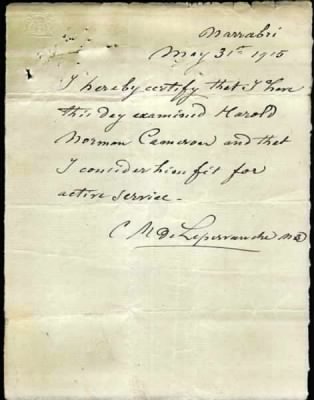 Narrabri
May 31st 1915
I hereby certify that I have
this day examined Harold
Norman Cameron and that
I consider him fit for
active service.
C M De Lepervanche MB